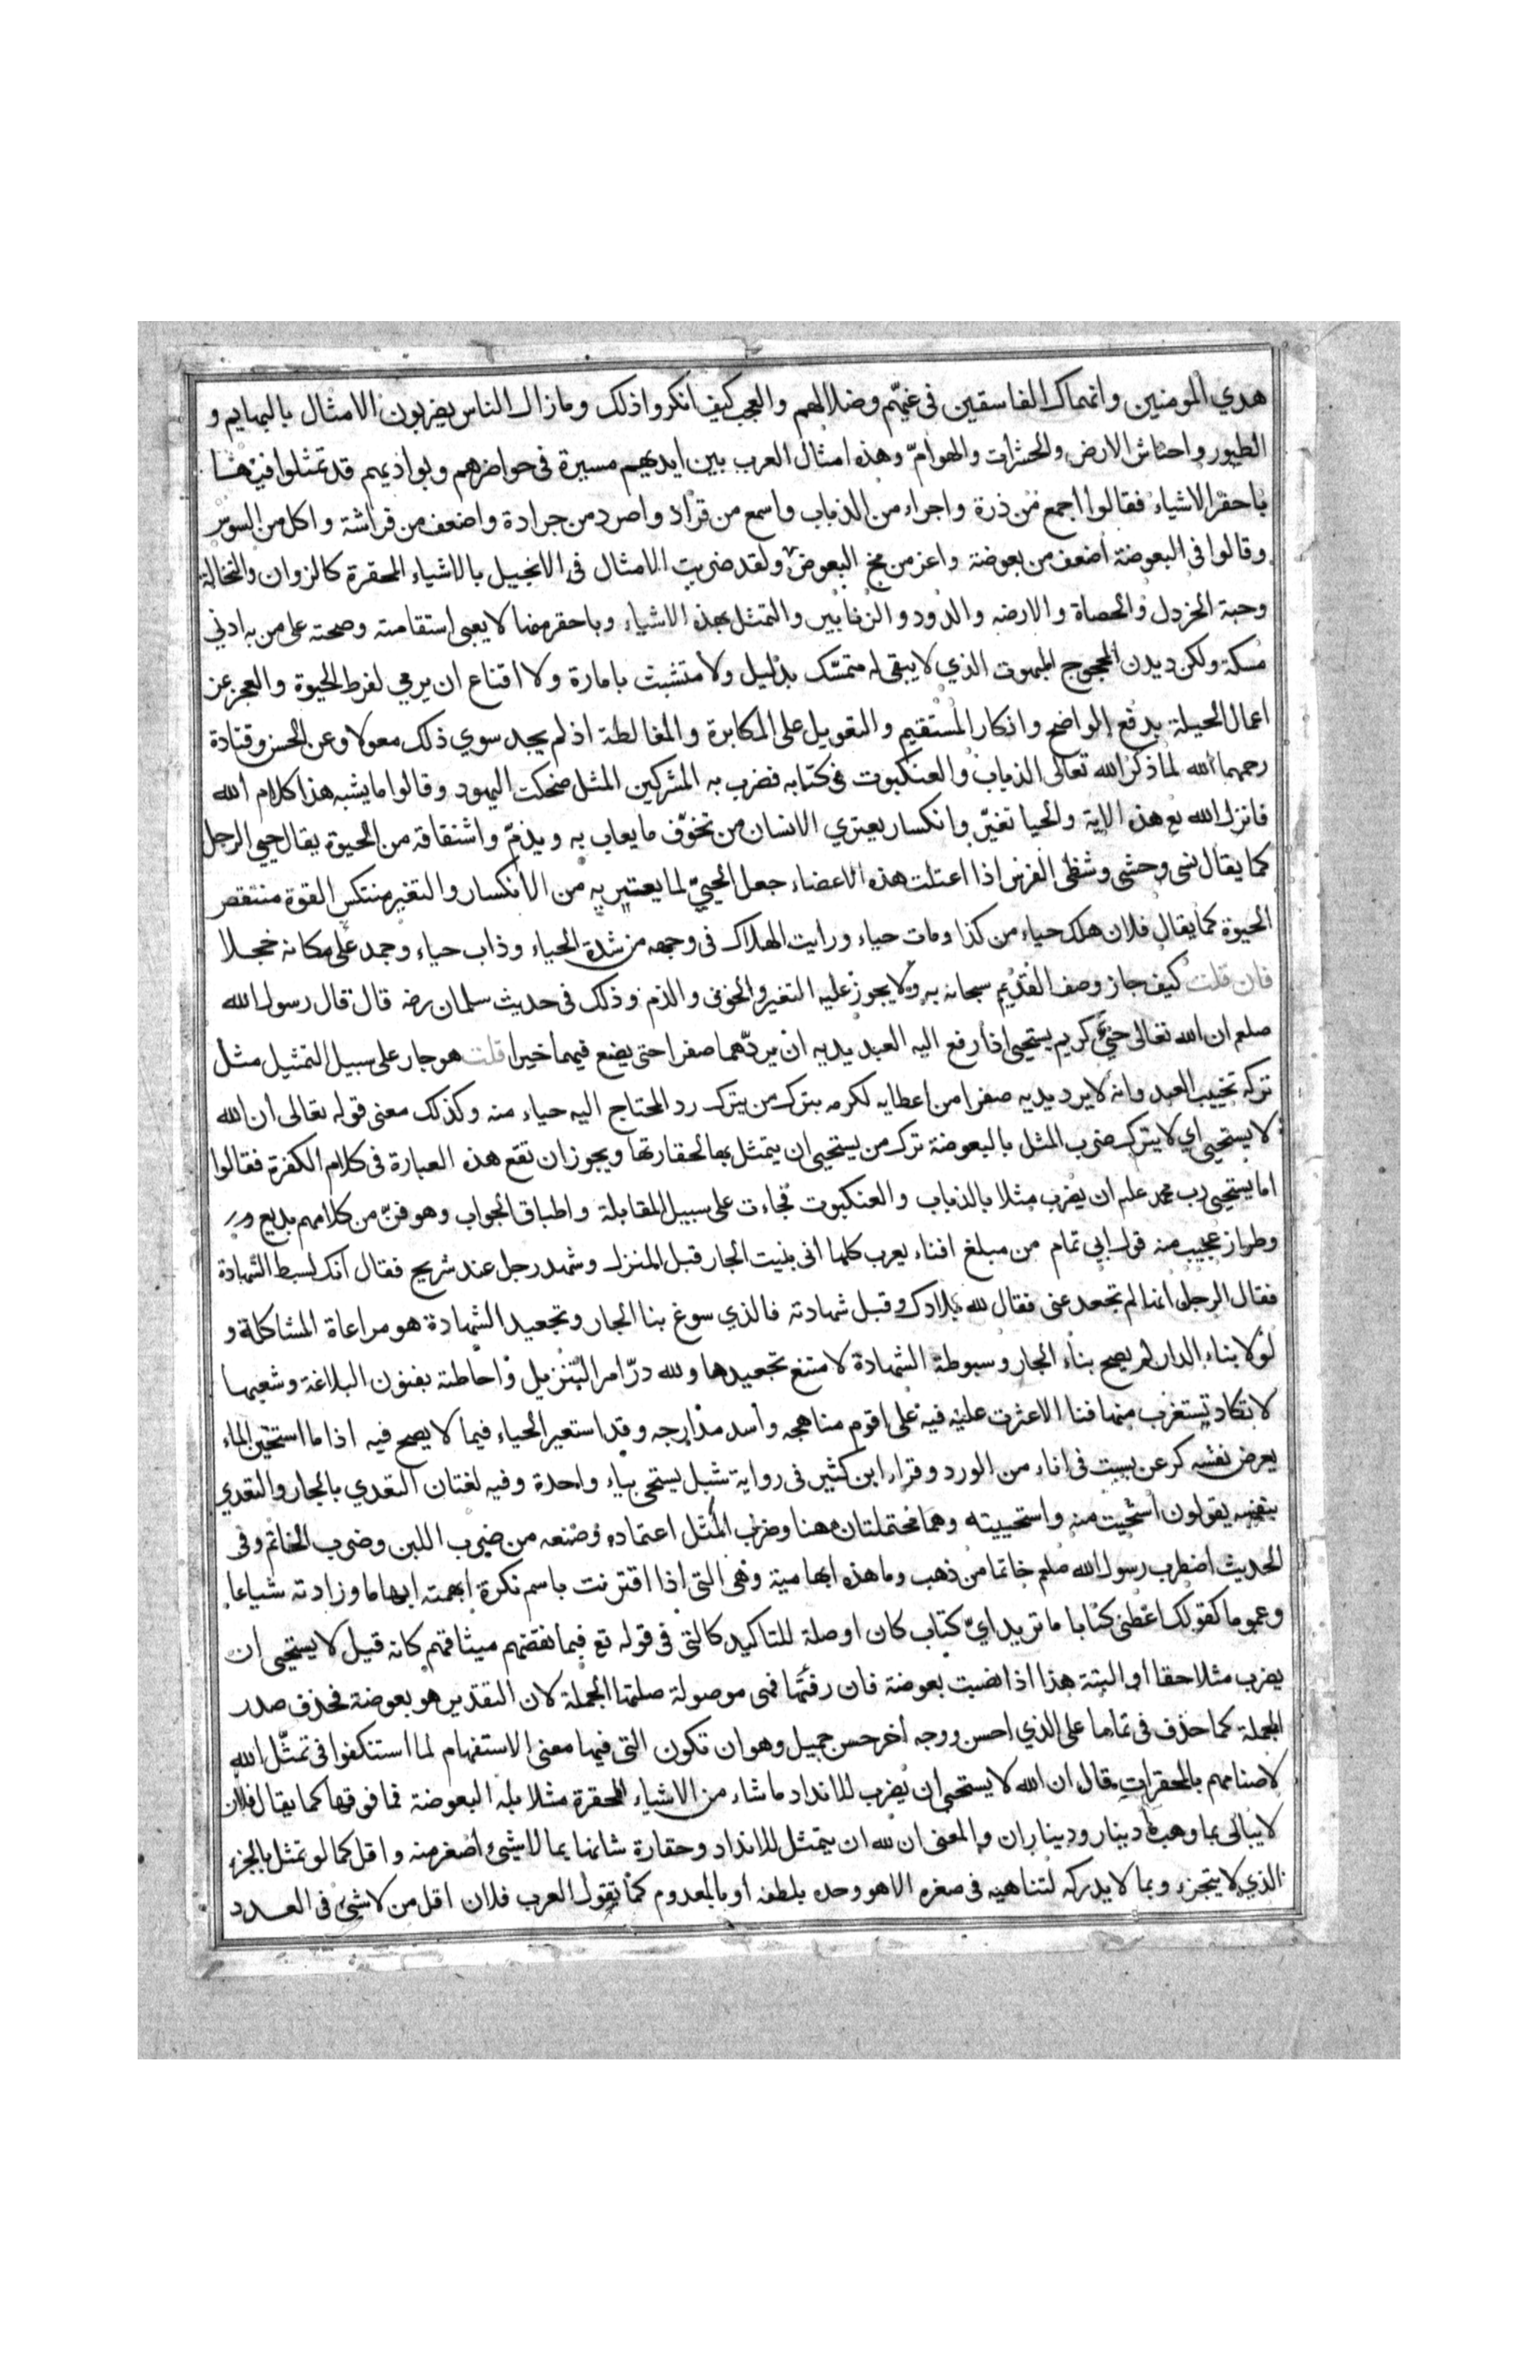 هدي المومنين وانهماك الفاسقين فى غيهم وضلالهم والعجب كيف انكروا ذلك ومازال الناس يضربون الامثال بالبهايم و
الطيور واحناش الارض والحشرات والهوامّ وهذه امثال العرب بين ايديهم مسيرة فى حواضرهم وبواديهم قد تمثلوا فيها
باحقر الاشياء فقالوا اجمع من ذرة واجراء من الذباب واسمع من قراد واصرد من جرادة واضعف من فراشة واكل من السوس
وقالوا فى البعوضة اضعف من بعوضة واعز من مخ البعوض ولقد ضربت الامثال فى الانجيل بالاشياء المحقرة كالزوان والنخالة
وحبة الخردل والحصاة والارضه والدود والزنابير والتمثل بهذه الاشياء وباحقر منها لا يعبى استقامته وصحته على من به ادني
مسكة ولكن ديدن المحجوج المبهوت الذي لا يبقى له متمسّك بدليل ولا متشبث بامارة ولا اقناع ان يرمي لفرط الحيوة والعجز عن
اعمال الحيلة بدفع الواضح وانكار المستقيم والتعويل على المكابرة والمغالطة اذ لم يجد سوي ذلك معولا وعن الحسن وقتادة
رحمهما الله لما ذكر الله تعالى الذباب والعنكبوت فى كتابه فضرب به المشركين المثل ضحكت اليهود وقالوا ما يشبه هذا كلام الله
فانزل الله تع هذه الاية والحيا تغيّر وانكسار يعتري الانسان من تخوّف ما يعاب به ويذمّ واشتقاقه من الحيوة يقال حيي الرجل
كما يقال نسى وحشى وشظى الفرس اذا اعتلت هذه الاعضاء جعل الحييّ لما يعتريه من الانكسار والتغير منتكس القوة منتقص
الحيوة كما يقال فلان هلك حياء من كذا ومات حياء ورايت الهلاك فى وجهه من شدة الحياء وذاب حياء وجمد على مكانه خجلا
فان قلت كيف جاز وصف القديم سبحانه به ولا يجوز عليه التغير والخوف والذم وذلك فى حديث سلمان رضه قال قال رسول الله
صلعم ان الله تعالى حيي كريم يستحيى اذا رفع اليه العبد يديه ان يردّهما صفرا حتى يضع فيهما خيرا قلت هو جار على سبيل التمثيل مثل
تركه تخييب العبد وانه لا يرد يديه صفرا من اعطايه لكرمه بترك من يترك رد المحتاج اليه حياء منه وكذلك معنى قوله تعالى ان الله
لا يستحيى اي لا يترك ضرب المثل بالبعوضة ترك من يستحيى ان يتمثل بها لحقارتها ويجوز ان تقع هذه العبارة فى كلام الكفرة فقالوا
اما يستحيى رب محمد علم ان يضرب مثلا بالذباب والعنكبوت فجاءت على سبيل المقابلة واطباق الجواب وهو فنّ من كلامهم بديع
وطراز عجيب منه قول ابي تمام من مبلغ افناء يعرب كلها انى بنيت الجار قبل المنزل وشهد رجل عند شريح فقال انك لسبط الشهادة
فقال الرجل انها لم تجعد عنى فقال لله بلادك وقبل شهادته فالذي سوغ بنا الجار وتجعيد الشهادة هو مراعاة المشاكلة و
لولا بناء الدار لم يصح بناء الجار وسبوطة الشهادة لامتنع تجعيدها ولله درّ امر التنزيل واحاطته بفنون البلاغة وشعبها
لا تكاد تستغرب منها فنا الا عثرت عليه فيه على اقوم مناهجه واسد مدارجه وقد استعير الحياء فيما لا يصح فيه اذا ما استحين الماء
يعرض نفسه كرعن بسبت فى اناء من الورد وقراء ابن كثير فى رواية شبل يستحى بياء واحدة وفيه لغتان التعدي بالجار والتعدي
بنفسه يقولون استحيت منه واستحييته وهما محتملتان ههنا وضرب المثل اعتماده وصنعه من ضرب اللبن وضرب الخاتم وفى
الحديث اضطرب رسول الله صلعم خاتما من ذهب وما هذه ابهامية وهى التى اذا اقترنت باسم نكرة ابهمته ابهاما وزادته شياعا
وعموما كقولك اعطنى كتابا ما تريد ايّ كتاب كان او صلة للتاكيد كالتى فى قوله تع فبما نقضهم ميثاقهم كانه قيل لا يستحيى ان
يضرب مثلا حقا او البتة هذا اذا نصبت بعوضة فان رفعتها فهى موصولة صلتها الجملة لان التقدير هو بعوضة فحذف صدر
الجملة كما حذف فى تماما على الذي احسن ووجه اخر حسن جميل وهو ان تكون التى فيها معنى الاستفهام لما استنكفوا فى تمثّل الله
لاصنامهم بالمحقرات قال ان الله لا يستحيى ان يضرب للانداد ما شاء من الاشياء المحقرة مثلا بله البعوضة فما فوقها كما يقال فلان
لا يبالى بما وهب ما دينار وديناران والمعنى ان لله ان يتمثل للانداد وحقارة شانها بما لا شيئ اصغر منه واقل كما لو تمثل بالجزء
الذي لا يتجزء وبما لا يدركه لتناهيه فى صغره الا هو وحده بلطفه او بالمعدوم كما تقول العرب فلان اقل من لا شيئ فى العدد